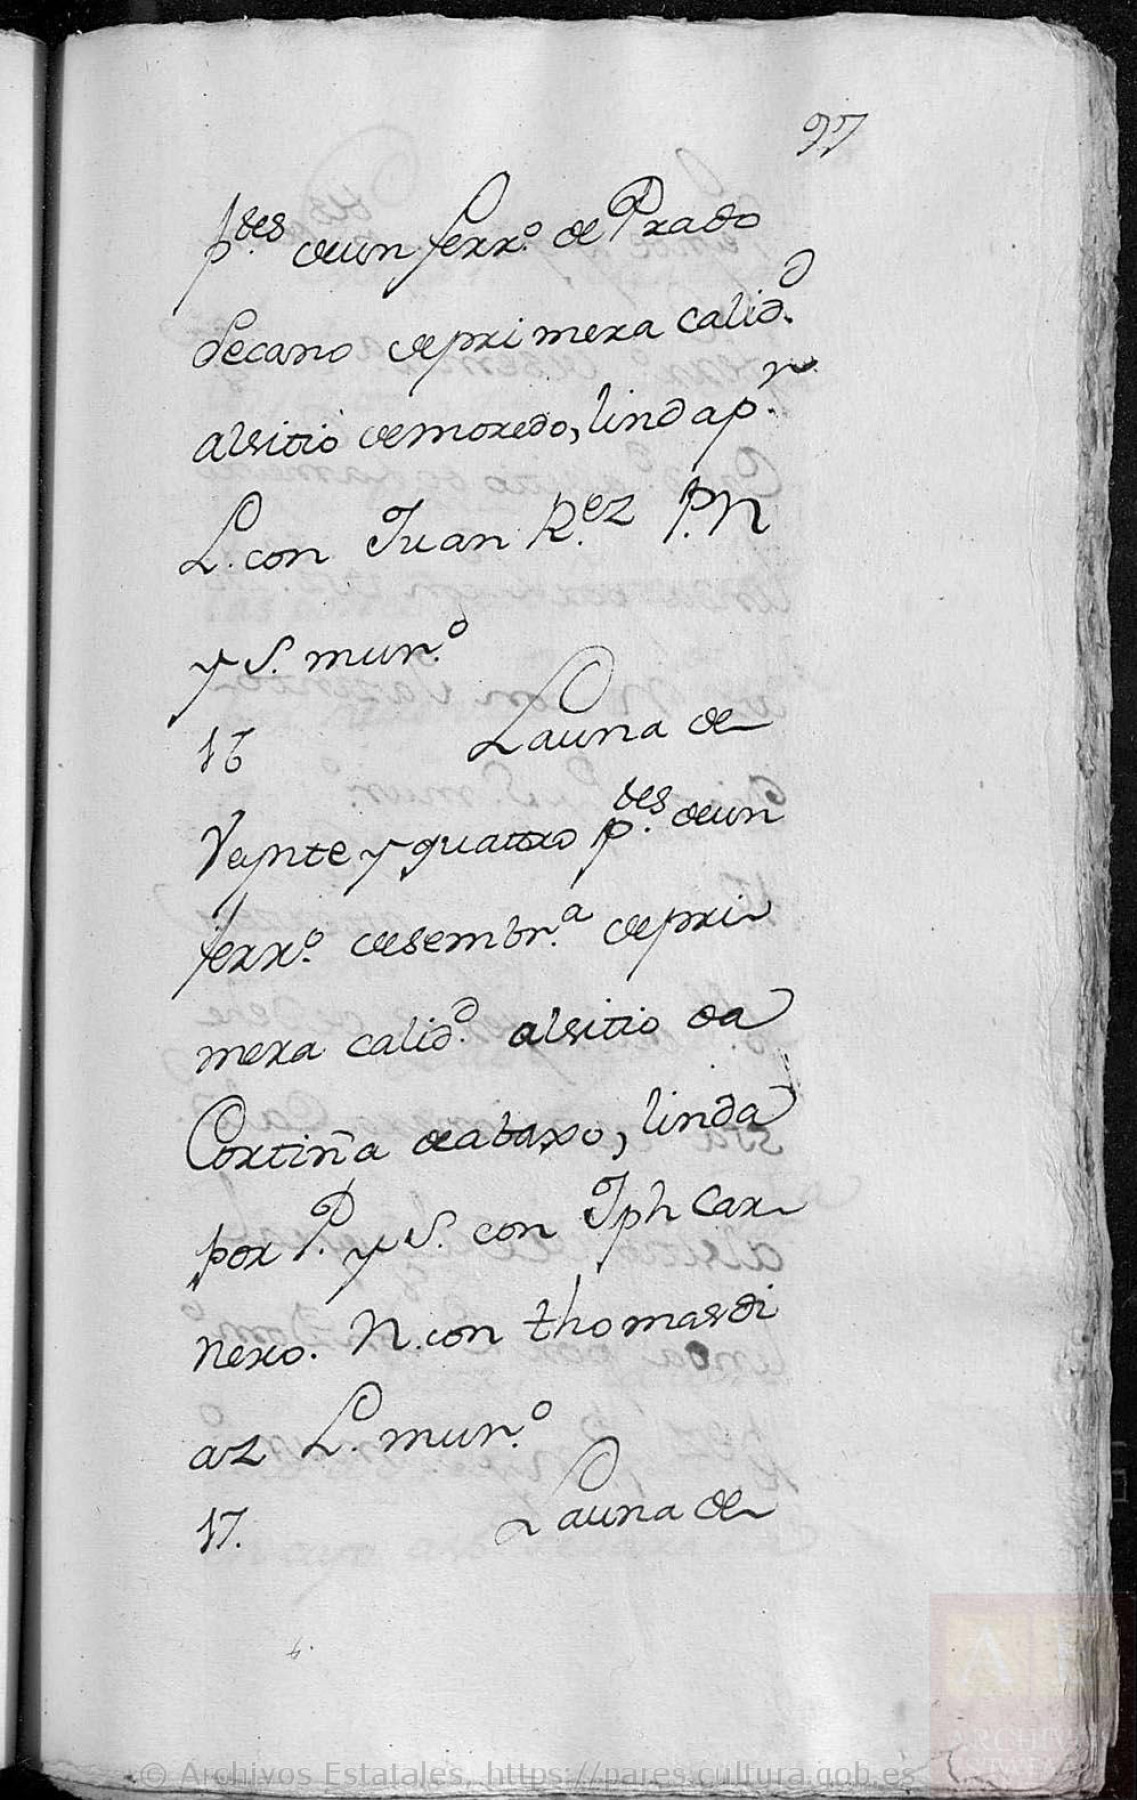 97
p.des deun ferr.o de Prado
Secano deprimera calid.d
alsitio demoredo, lind ap.r
L. con Juan R.ez P. N
y S. mun.o
16 La una de
Veynte y quattro p.des deun
ferr.o desembr.a depri
mera calid.d alsitio da
Cortiña deabaxo, linda
por P. y S. con Jph Car
nero. N. con thomas di
az L. mun.o
17. La una de
© Archivos Estatales, https://pares.cultura.gob.es